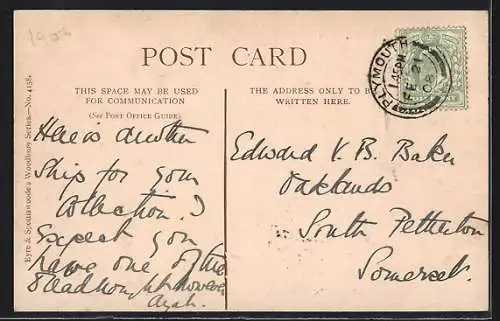 1905
POST CARD
THIS SPACE MAY BE USED
FOR COMMUNICATION
(See Post Office Guide)
THE ADDRESS ONLY TO BE
WRITTEN HERE.
PLYMOUTH
1.45PM
FE 21
Eyre & Spottiswoode's Woodbury Series.—No. 4158.
Here is another
ship for your
collection. I
expect you
have one of the
Dreadnought however
Edward V. B. Baker
Oaklands
South Petherton
Somerset.